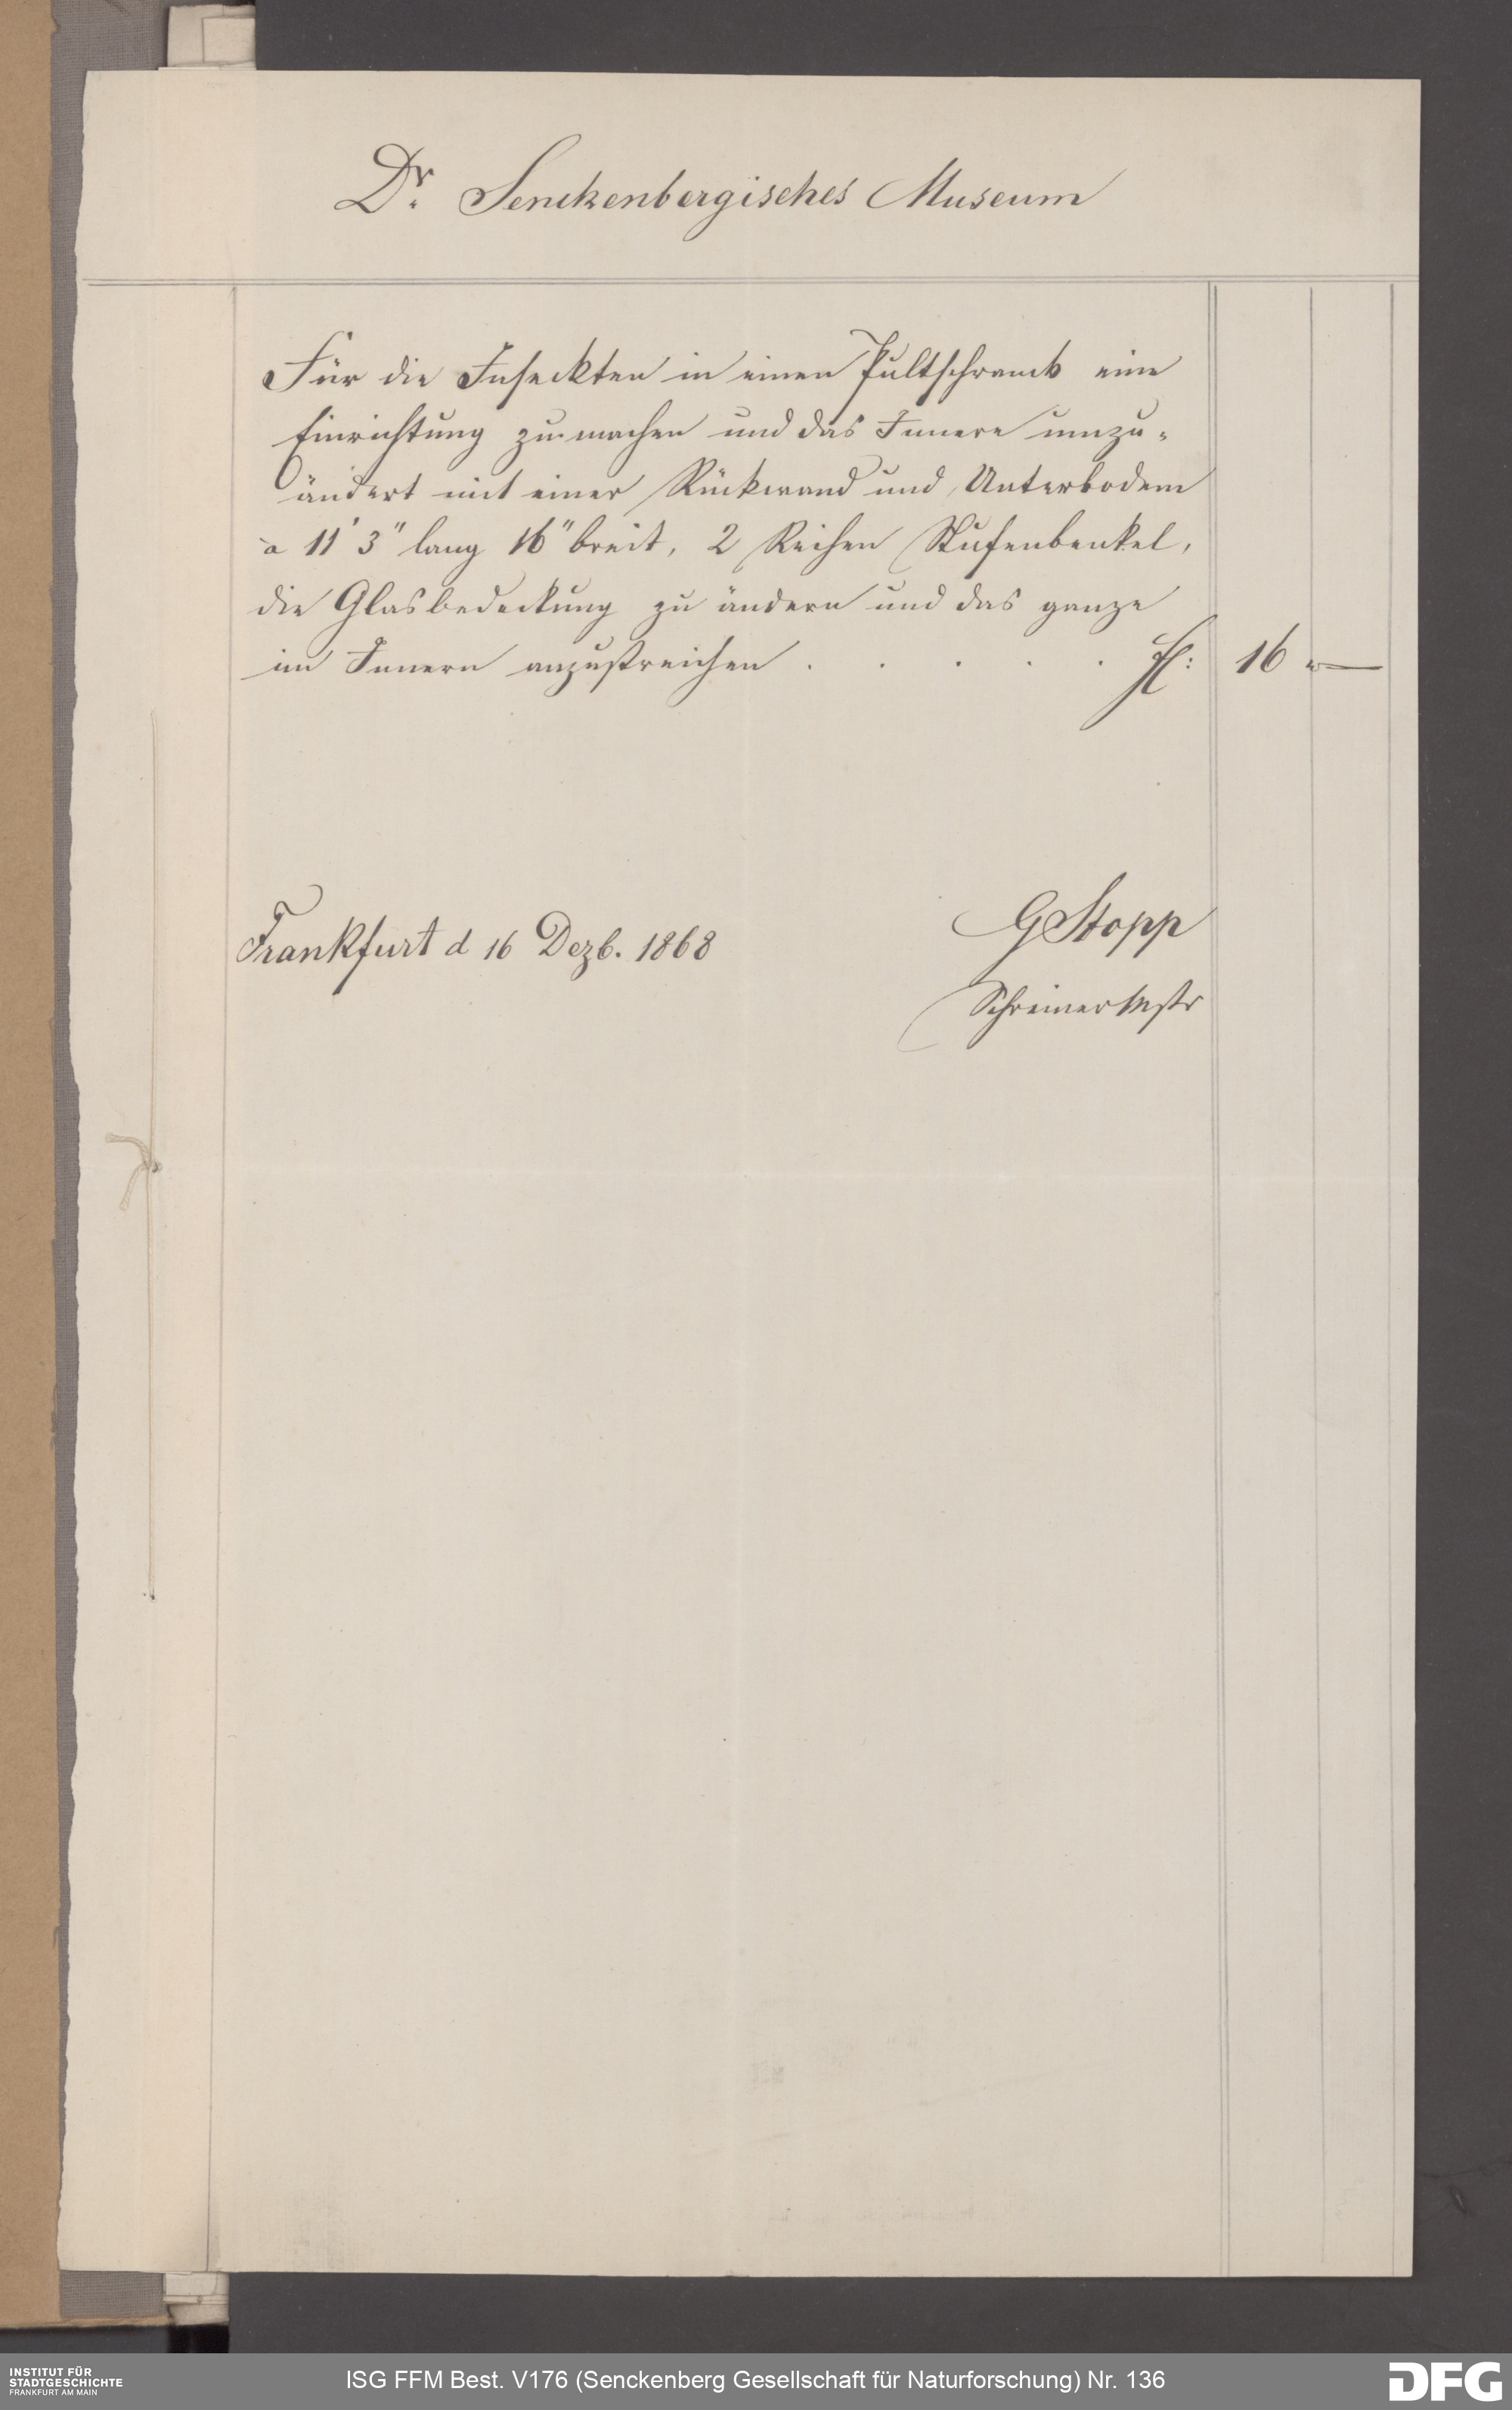 Dr. Senckenbergisches Museum
Für die Inseckten in einen Pultschranck eine
Einrichtung zu machen und das Innere umzu-
ändert mit einer Rückwand und Unterbodem
a 11' 3" lang 16" breit, 2 Reihen Stufenbenkel,
die Glasbedeckung zu ändern und das ganze
im Innern anzustreichen . . . . . fl: 16 "—
Frankfurt d 16 Dezb. 1868
G Stopp
Schreinermstr
INSTITUT FÜR
STADTGESCHICHTE
FRANKFURT AM MAIN
ISG FFM Best. V176 (Senckenberg Gesellschaft für Naturforschung) Nr. 136
DFG